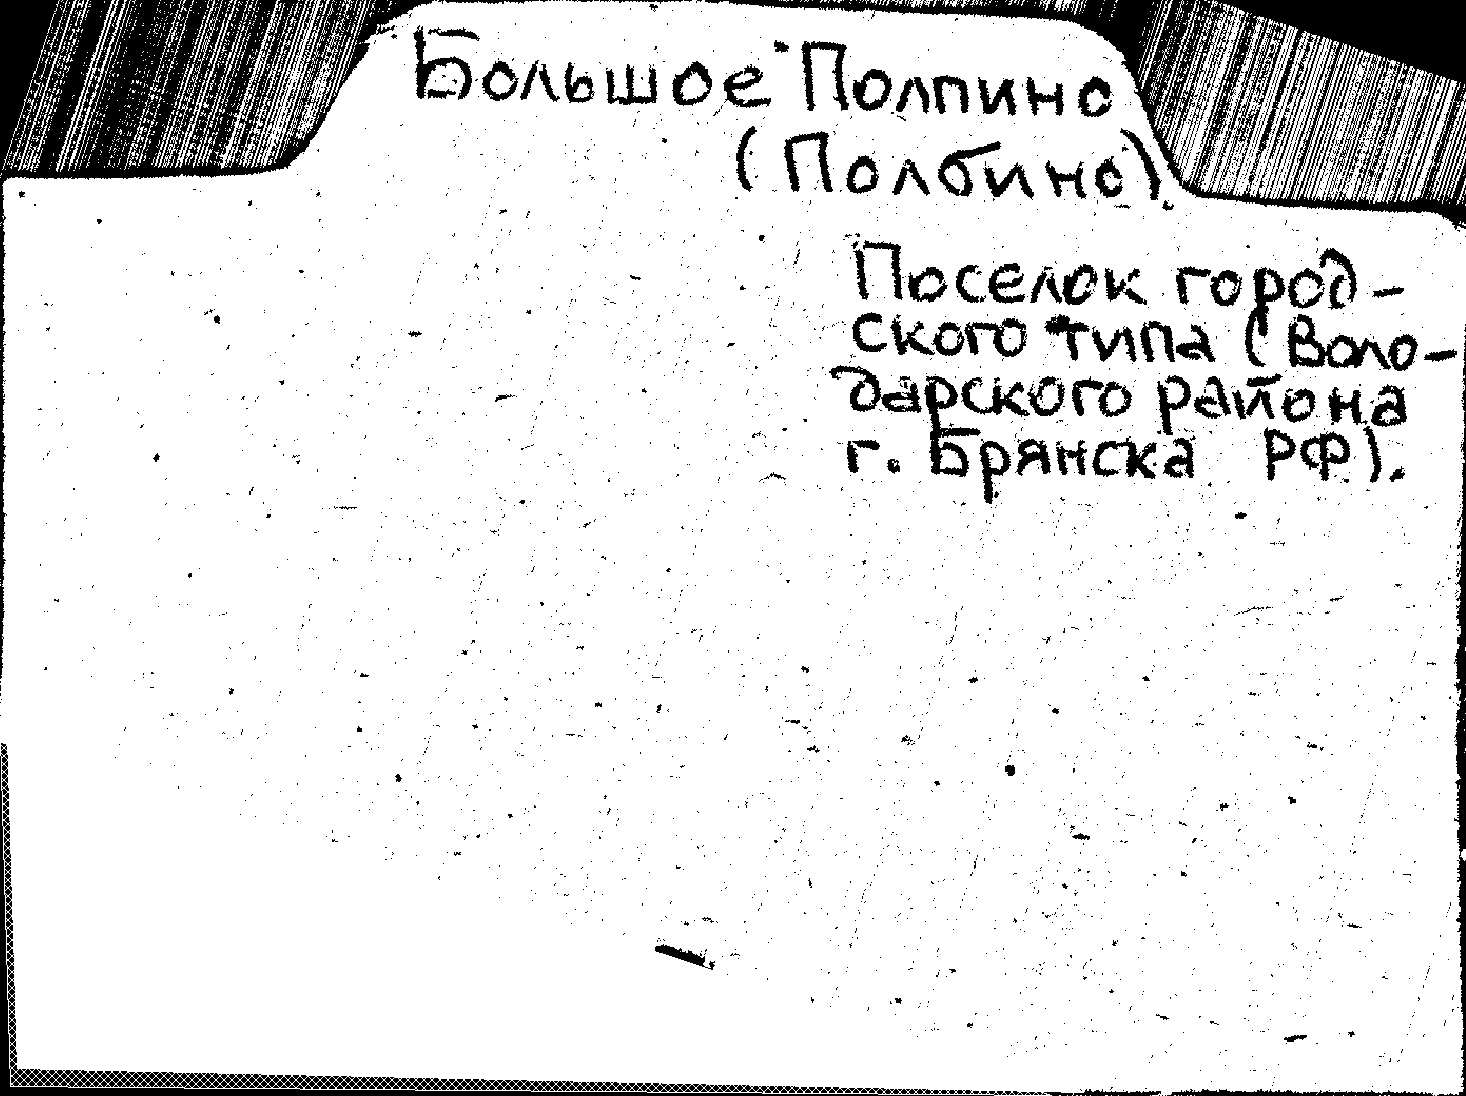 Большое Полпино
(Полбино).
Поселок город-
ского типа (Воло-
дарского района
г. Брянска РФ).